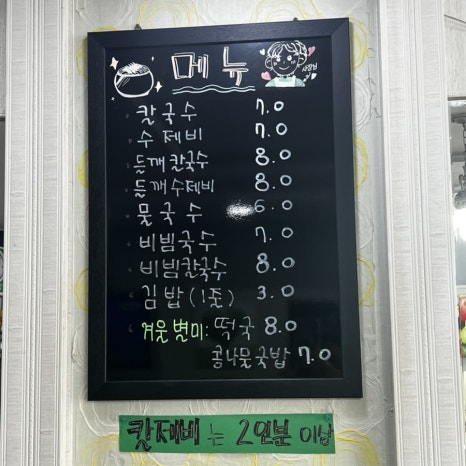 메뉴
사장님
칼국수 7.0
수제비 7.0
들깨칼국수 8.0
들깨수제비 8.0
물국수 6.0
비빔국수 7.0
비빔칼국수 8.0
김밥(1줄) 3.0
겨울별미: 떡국 8.0
콩나물국밥 7.0
칼제비는 2인분 이상